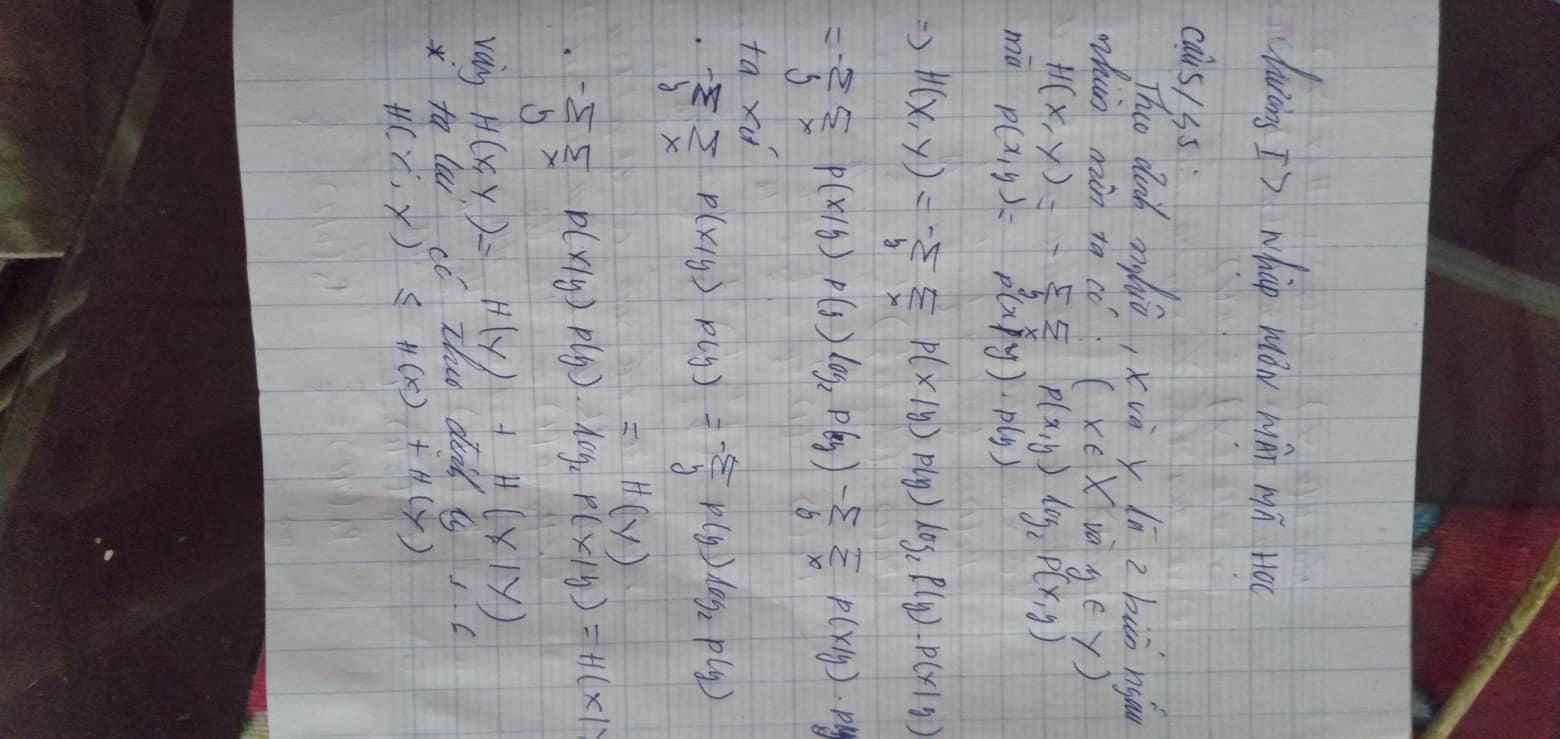 Chương I > Nhập môn mật mã học
Câu 5/45:
Theo định nghĩa, X và Y là 2 biến ngẫu
nhiên nên ta có: ( x ∈ X và y ∈ Y)
H(X,Y) = - Σ_y Σ_x p(x,y) log₂ p(x,y)
mà p(x,y) = p(x|y) . p(y)
=> H(X,Y) = - Σ_y Σ_x p(x|y) p(y) log₂ p(y) . p(x|y)
= - Σ_y Σ_x p(x|y) p(y) log₂ p(y) - Σ_y Σ_x p(x|y) . p(y)
ta xét
. - Σ_y Σ_x p(x|y) p(y) = - Σ_y p(y) log₂ p(y)
= H(Y)
. - Σ_y Σ_x p(x|y) p(y) . log₂ p(x|y) = H(X|Y
Vậy H(X,Y) = H(Y) + H(X|Y)
* ta lại có theo định lý
H( , Y) ≤ H(X) + H(Y)